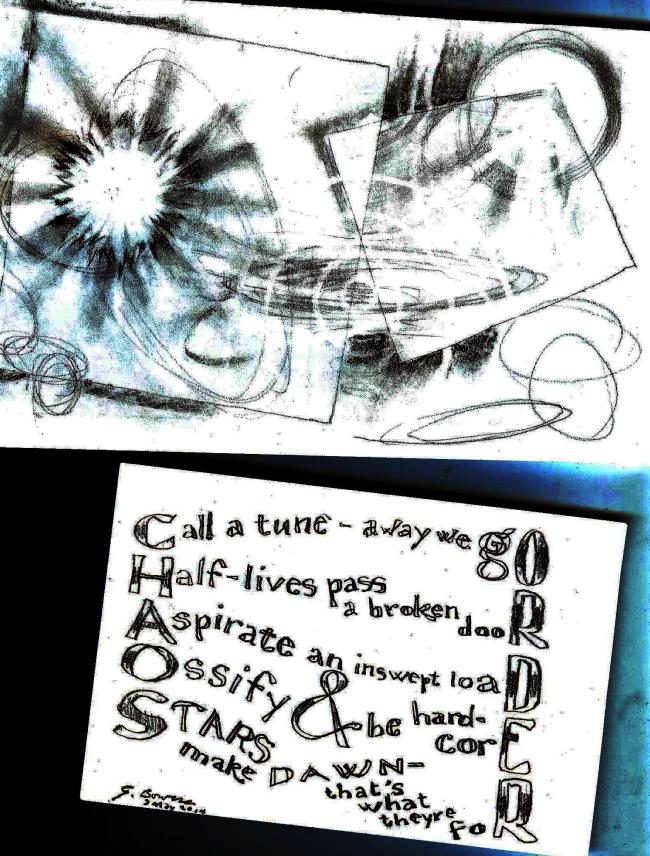 Call a tune - away we gO
Half-lives pass
a broken
dooR
Aspirate an inswept loaD
Ossify & be hard-
corE
STARS
make DAWN-
that's
what
theyre
foR
May 2014